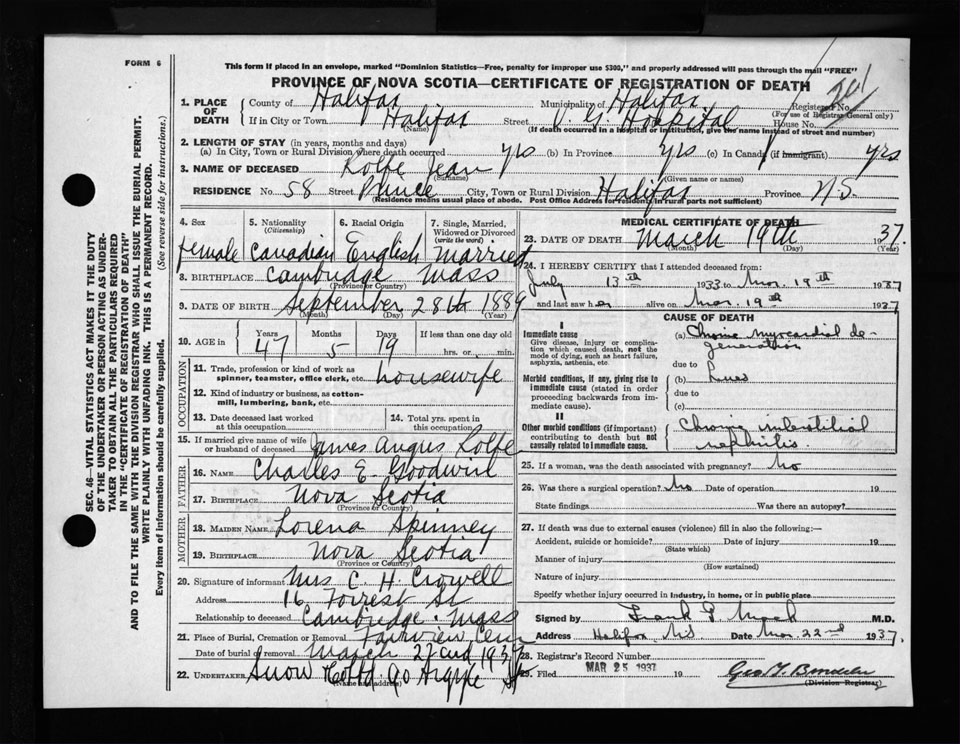 FORM 6
This form if placed in an envelope, marked "Dominion Statistics—Free, penalty for improper use $300," and properly addressed will pass through the mail "FREE"
PROVINCE OF NOVA SCOTIA—CERTIFICATE OF REGISTRATION OF DEATH
SEC. 46—VITAL STATISTICS ACT MAKES IT THE DUTY
OF THE UNDERTAKER OR PERSON ACTING AS UNDER-
TAKER TO OBTAIN ALL THE PARTICULARS REQUIRED
IN THE "CERTIFICATE OF REGISTRATION OF DEATH"
AND TO FILE THE SAME WITH THE DIVISION REGISTRAR WHO SHALL ISSUE THE BURIAL PERMIT.
WRITE PLAINLY WITH UNFADING INK. THIS IS A PERMANENT RECORD.
Every item of information should be carefully supplied. (See reverse side for instructions.)
1. PLACE OF DEATH
County of Halifax Municipality of Halifax Registered No.
(For use of Registrar General only)
If in City or Town Halifax Street V. G. Hospital House No.
(Name) (If death occurred in a hospital or institution, give the name instead of street and number)
2. LENGTH OF STAY (in years, months and days)
(a) In City, Town or Rural Division where death occurred yrs (b) In Province yrs (c) In Canada (if immigrant) yrs
3. NAME OF DECEASED Rolfe Jean
(Surname) (Given name or names)
RESIDENCE No. 58 Street Prince City, Town or Rural Division Halifax Province N.S.
(Residence means usual place of abode. Post Office Address for residents in rural parts not sufficient)
4. Sex 5. Nationality (Citizenship) 6. Racial Origin 7. Single, Married, Widowed or Divorced (write the word)
female Canadian English Married
8. BIRTHPLACE Cambridge Mass
(Province or Country)
9. DATE OF BIRTH September 28th 1889
(Month) (Day) (Year)
10. AGE in Years Months Days If less than one day old
47 5 19 hrs. or min.
OCCUPATION
11. Trade, profession or kind of work as
spinner, teamster, office clerk, etc. housewife
12. Kind of industry or business, as cotton-
mill, lumbering, bank, etc.
13. Date deceased last worked
at this occupation
14. Total yrs. spent in
this occupation
15. If married give name of wife
or husband of deceased James Angus Rolfe
FATHER
16. NAME Charles E. Goodwin
17. BIRTHPLACE Nova Scotia
(Province or Country)
MOTHER
18. MAIDEN NAME Lorena Spinney
19. BIRTHPLACE Nova Scotia
(Province or Country)
20. Signature of informant Mrs C. H. Crowell
Address 16 Forrest St
Relationship to deceased Cambridge Mass
21. Place of Burial, Cremation or Removal Fairview Cem
Date of burial or removal March 22nd 1937
22. UNDERTAKER Snow & Co Ltd. 90 Argyle St
(Name and Address)
MEDICAL CERTIFICATE OF DEATH
23. DATE OF DEATH March 19th 1937.
(Month) (Day) (Year)
24. I HEREBY CERTIFY that I attended deceased from:
July 13th 1933 to Mar. 19th 1937
and last saw her alive on Mar. 19th 1937
CAUSE OF DEATH
I
Immediate cause
Give disease, injury or complica-
tion which caused death, not the
mode of dying, such as heart failure,
asphyxia, asthenia, etc.
(a) Chronic myocardial de-
generation
due to
Morbid conditions, if any, giving rise to
immediate cause (stated in order
proceeding backwards from im-
mediate cause).
(b) Lues
due to
(c)
II
Other morbid conditions (if important)
contributing to death but not
causally related to immediate cause.
Chronic interstitial
nephritis
25. If a woman, was the death associated with pregnancy? No
26. Was there a surgical operation? No Date of operation 19
State findings Was there an autopsy?
27. If death was due to external causes (violence) fill in also the following:—
Accident, suicide or homicide? Date of injury 19
(State which)
Manner of injury
(How sustained)
Nature of injury
Specify whether injury occurred in Industry, in home, or in public place
Signed by Frank G. Mack M.D.
Address Halifax N.S. Date Mar. 22nd 1937.
28. Registrar's Record Number
29. Filed MAR 25 1937 19
(Division Registrar)